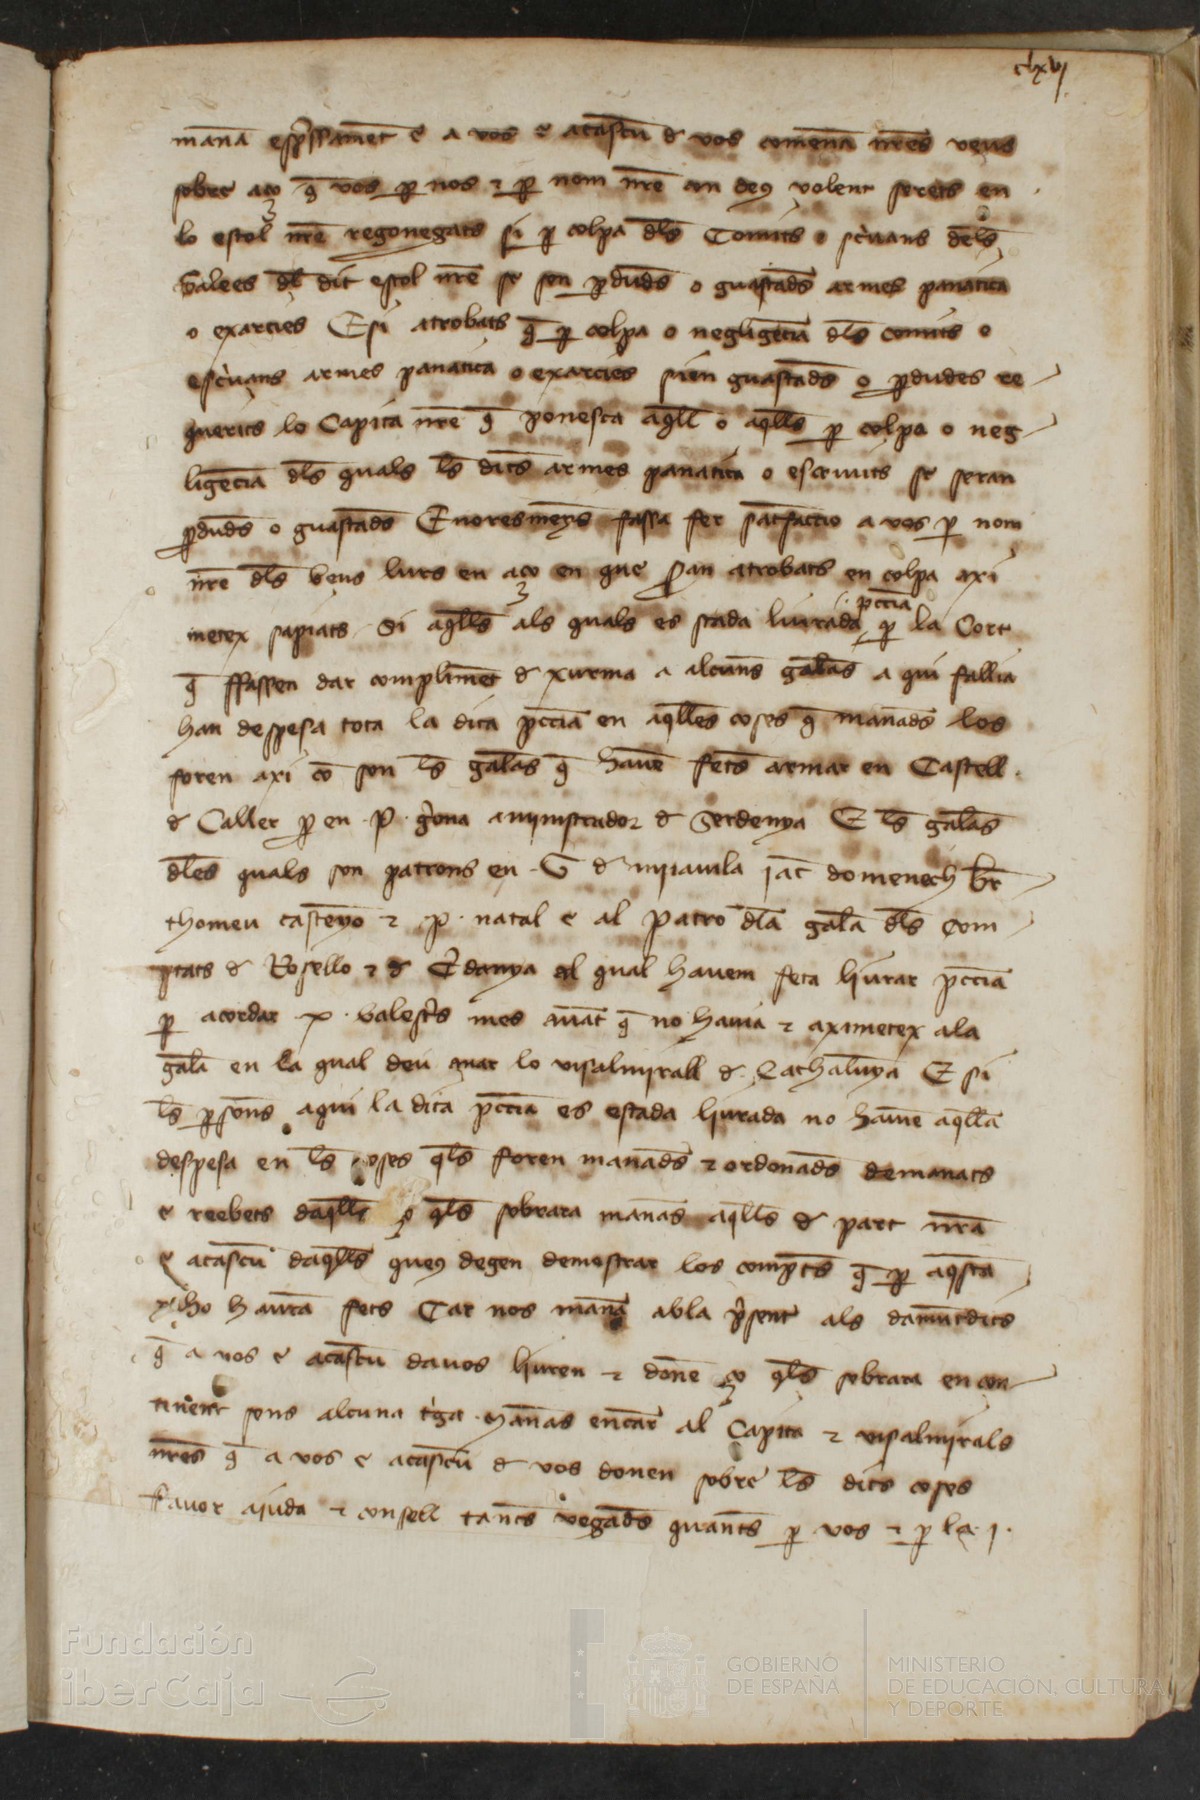 clxvj
mana espressamet e a vos e acascu d vos comena nres veus
sobre aço q vos p nos e p nom nre con deus volent serets en
lo estol nre regonegats si p colpa dls Comits o scrivans dels
Galees dl dit estol nre se son pdudes o guastads armes panatica
o exarcies E si atrobats q p colpa o negligecia dls comits o
escrivans armes panatica o exarcies sien guastads o pdudes re
querits lo Capita nre q ponesca aqll o aqlls p colpa o neg
ligecia dls quals ls dits armes panatica o se seran
pduds o guastads E noresmeys fassa fer satsfaccio a vos p nom
nre dls bens lurs en aço en que seran atrobats en colpa axi
metex sapiats Si aqlls als quals es stada liurada pccia p la Cort
q ffassen dar complimet d xurma a alcuns galeas a qui fallia
han despesa tota la dita pccia en aqlles coses q manads los
foren axi co son ls galeas q havem fets armar en Castell
d Caller p en P. gerona aministrador d Serdenya E ls galeas
dles quals son patrons en G d miravila jac domenech br
thomeu castenyo e P. natal e al patro dla galea dls Com
ptats d Rosello e d Cerdanya al qual havem feta liurar pccia
p acordar x balests mes avat q no havia e aximetex ala
galea en la qual deu anar lo visalmirall d Cathalunya E si
ls psones aqui la dita pccia es estada liurada no havie aqlla
despesa en ls coses qls foren manads e ordonads demanats
e reebets daqlls ço qls sobrara manas aqlls d part nra
e acascu daqlls queus degen demostrar los compts q p aqsta
ho haura fets Car nos mana abla present als damutdits
q a vos e acascu davos liuren e done ço qls sobrara en con
tinent sens alcuna triga Manas encar al Capita e visalmirals
nres q a vos e acascu d vos donen sobre ls dits coses
favor ajuda e consell tants vegads quants p vos e p la j.
Fundación
iberCaja
GOBIERNO
DE ESPAÑA
MINISTERIO
DE EDUCACIÓN, CULTURA
Y DEPORTE